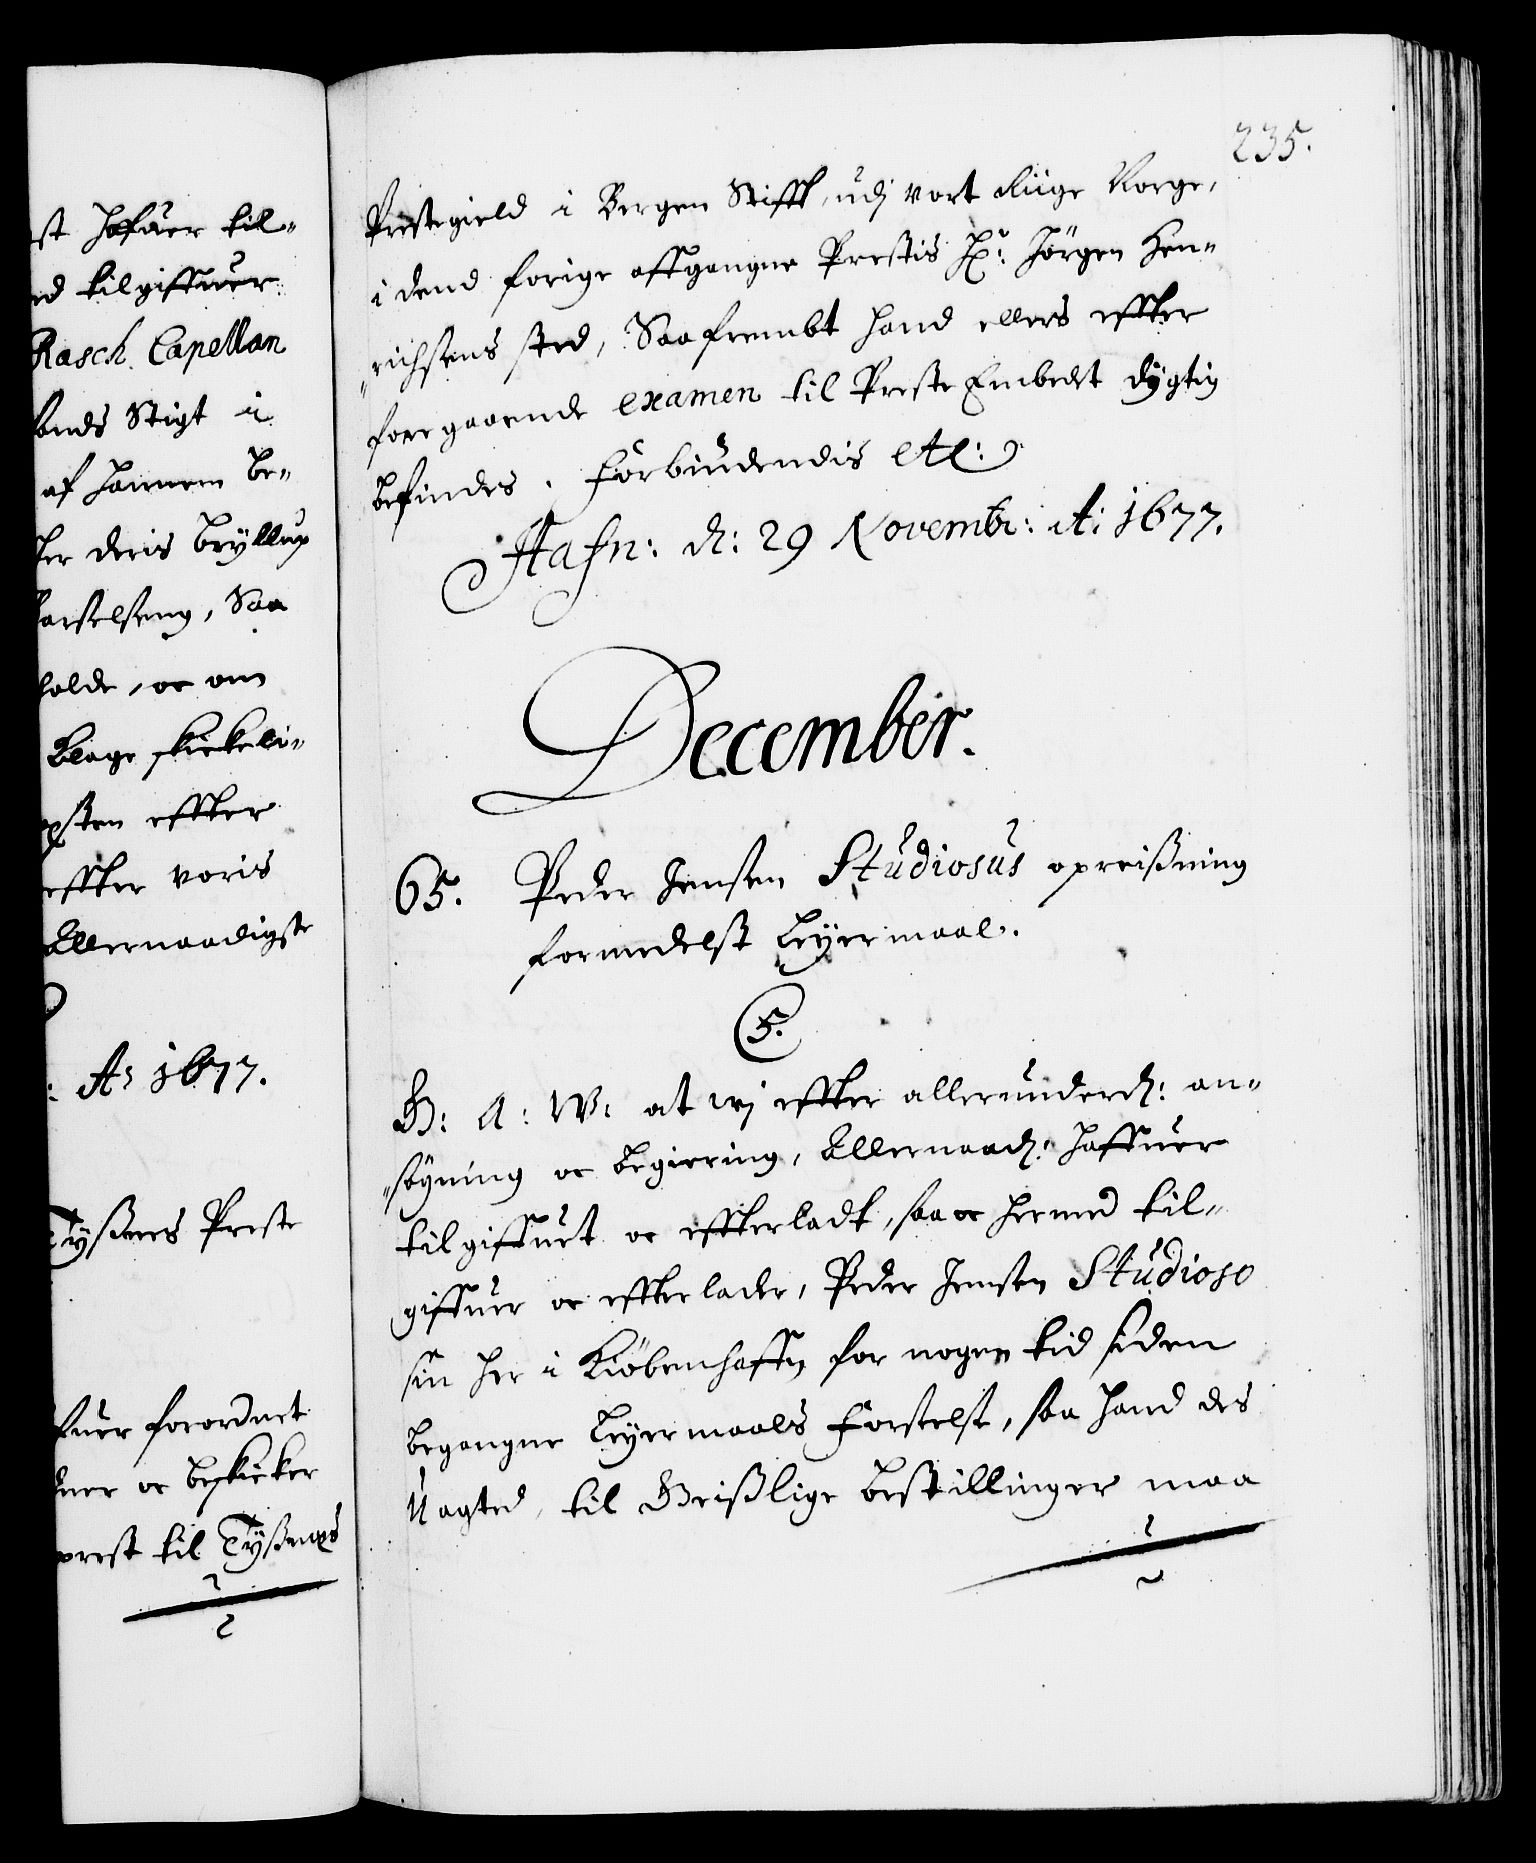 st hafuer til-
ed tilgiffuer
Rasch. Capellan
lands Stigt i
af hannem be-
ther deris Bryllup
barselseng, Saa
holde, oc om
Klage skickeli-
effter
effter voris
Allernaadigste
: A: 1677.
Tyßnes Preste
fuer forordnet
oc beskicker
prest til Tyßnes
235.
Prestegield i Bergen Stifft, udj vort Riige Norge,
i dend forige affgangne Prestis Hr: Jörgen Hen-
richsens sted, Saafrembt hand ellers effter
foregaaende examen til PresteEmbedet dygtig
befindes. Forbiudendis etc:
Hafn: d: 29 Novembr: A: 1677.
December.
65. Peder Jensen Studiosus opreißning
formedelst Leyermaal.
5.
G: A: W: at wj effter allerunderd: an-
söguing oc begiering, Allernaad: haffuer
tilgiffuet oc effterladt, saa oc hermed til-
giffuer oc effterlader, Peder Jensen Studioso
sin her i Kiöbenhaffn for nogen tid siden
begangne Leyermaals Forseelse, saa hand des
Uagted, til Geistlige bestillinger maa